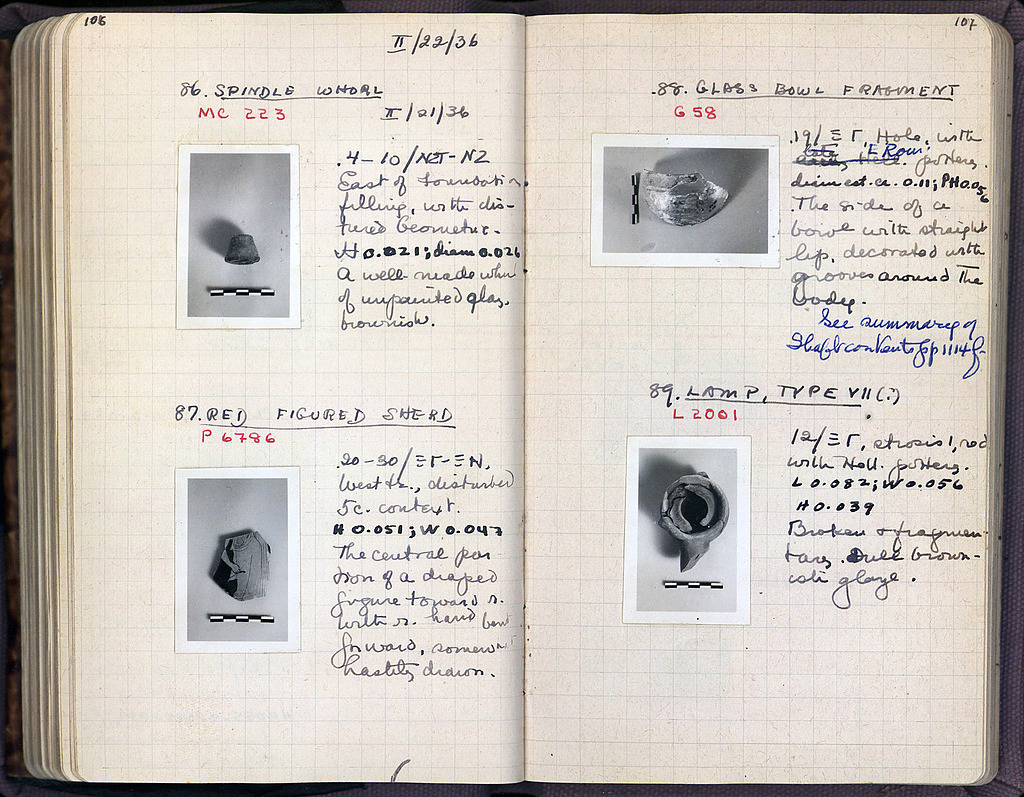 106
II/22/36
86. SPINDLE WHORL
MC 223
II/21/36
.4-10/
East of foundation
filling, with dis-
turbed Geometric.
H 0.021; diam 0.026
A well-made whorl
of unpainted glaz,
brownish.
87. RED FIGURED SHERD
P 6786
.20-30/ΞΓ-ΞΝ,
West tr., disturbed
5c. context.
H 0.051; W 0.047
The central por
tion of a draped
figure toward r.
with r. hand bent
forward, somewhat
hastily drawn.
107
.88. GLASS BOWL FRAGMENT
G 58
.19/ΞΓ, Hole, with
late E Rom.
Hell. pottery.
diam est. ca. 0.11; PH 0.056
.The side of a
bowl with straight
lip, decorated with
grooves around the
body.
See summary of
Shaft contents pp 1114 f-
89. LAMP, TYPE VII(?)
L 2001
12/ΞΓ, strosis 1, red
with Hell. pottery.
L 0.082; W 0.056
H 0.039
Broken & fragmen-
tary. Dull brown-
ish glaze.